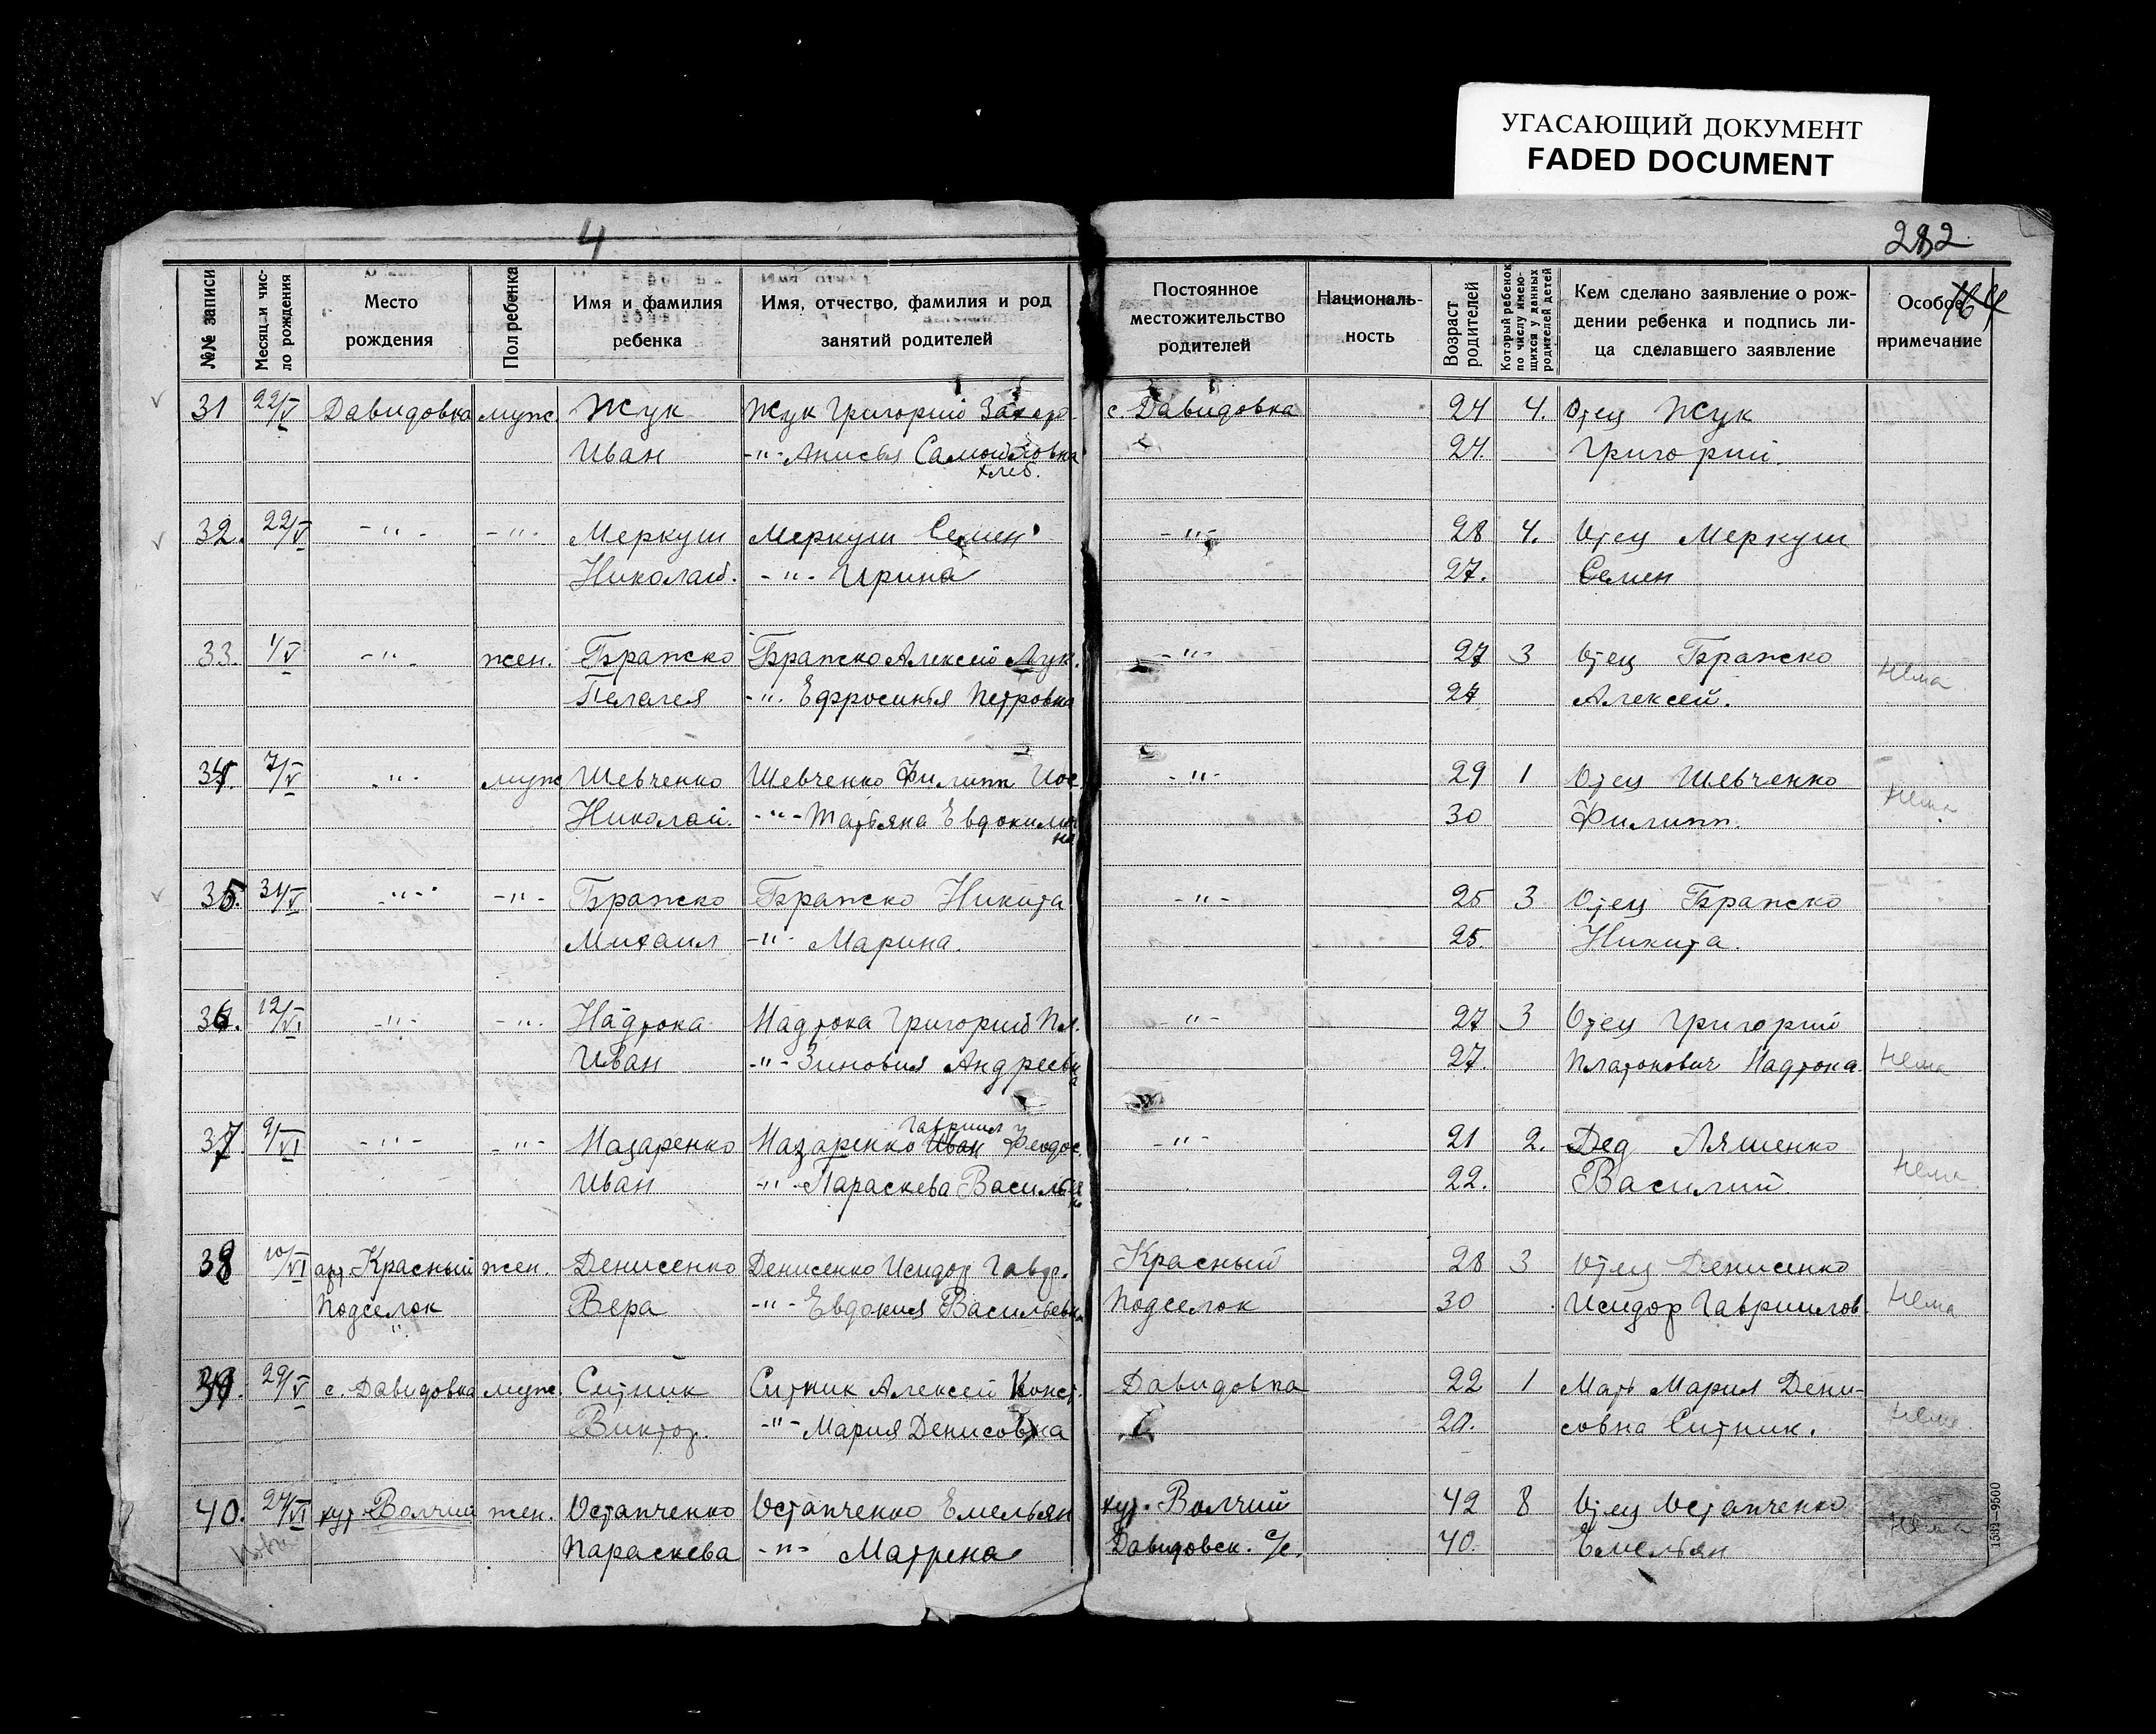 УГАСАЮЩИЙ ДОКУМЕНТ
FADED DOCUMENT
4
282
№№ записи
Месяц и число рождения
Место рождения
Пол ребенка
Имя и фамилия ребенка
Имя, отчество, фамилия и род занятий родителей
Постоянное местожительство родителей
Националь-ность
Возраст родителей
Который ребенок по числу имею-щихся у данных родителей детей
Кем сделано заявление о рож-дении ребенка и подпись ли-ца сделавшего заявление
Особое примечание
31 22/V Давидовка муж. Жук Жук Григорий Захар. с. Давидовка 24 4. Отец Жук
Иван -"- Анисья Самойловна 24. Григорий.
хлеб.
32. 22/V -"- -"- Меркуш Меркуш Семен -"- 28 4. Отец Меркуш
Николай. -"- Ирина 27. Семен
33. 1/V -"- жен. Бражко Бражко Алексей Лук. -"- 27 3 Отец Бражко
Пелагея -"- Ефросинья Петровна 27 Алексей. Нема
34. 7/V -"- муж Шевченко Шевченко Филипп Иос -"- 29 1 Отец Шевченко
Николай. -"- Татьяна Евдокимовна 30 Филипп. Нема
35. 31/V -"- -"- Бражко Бражко Никита -"- 25 3 Отец Бражко
Михаил -"- Марина. 25. Никита.
36. 12/VI -"- -"- Надтока Надтока Григорий Пл. -"- 27 3 Отец Григорий
Иван -"- Зиновия Андреевна 27. Платонович Надтока. Нема
Гавриил
37 9/VI -"- -"- Назаренко Назаренко Иван Феодос. -"- 21 2. Дед Ляшенко
Иван -"- Параскева Василье 22. Василий Нема
38 10/VI Красный жен. Денисенко Денисенко Исидор Гавр. Красный 28 3 Отец Денисенко
Подселок Вера -"- Евдокия Васильевна Подселок 30 Исидор Гавриилов. Нема
39. 29/V с. Давидовка муж. Ситник Ситник Алексей Конст. Давидовка 22 1 Мать Мария Дени-
Виктор. -"- Мария Денисовна 20. совна Ситник. Нема
40. 24/VI хут. Волчий жен. Остапченко Остапченко Емельян хут. Волчий 42 8 Отец Остапченко
Параскева -"- Матрена Давидовск. с/с. 40. Емельян Нема
1582—9500